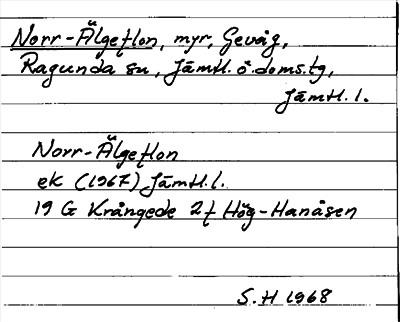 Norr-Älgeflon, myr, Gevåg,
Ragunda sn, Jämtl. ö. doms.tg,
Jämtl. l.
Norr-Älgeflon
ek (1967) Jämtl. l.
19 G Krångede 2f Hög-Hanåsen
S.H 1968